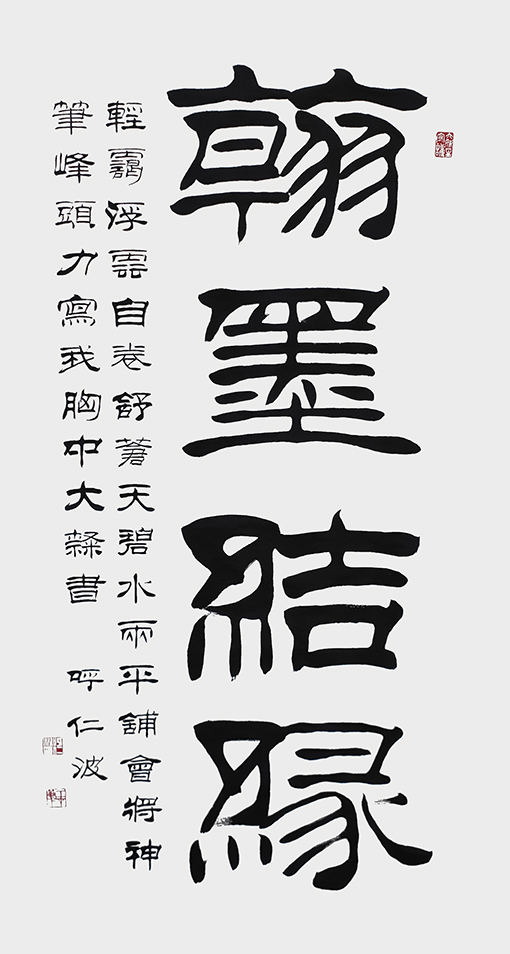 翰墨結緣
輕靄浮雲自卷舒蒼天碧水兩平鋪會將神
筆峰頭力寫我胸中大隸書 呼仁波